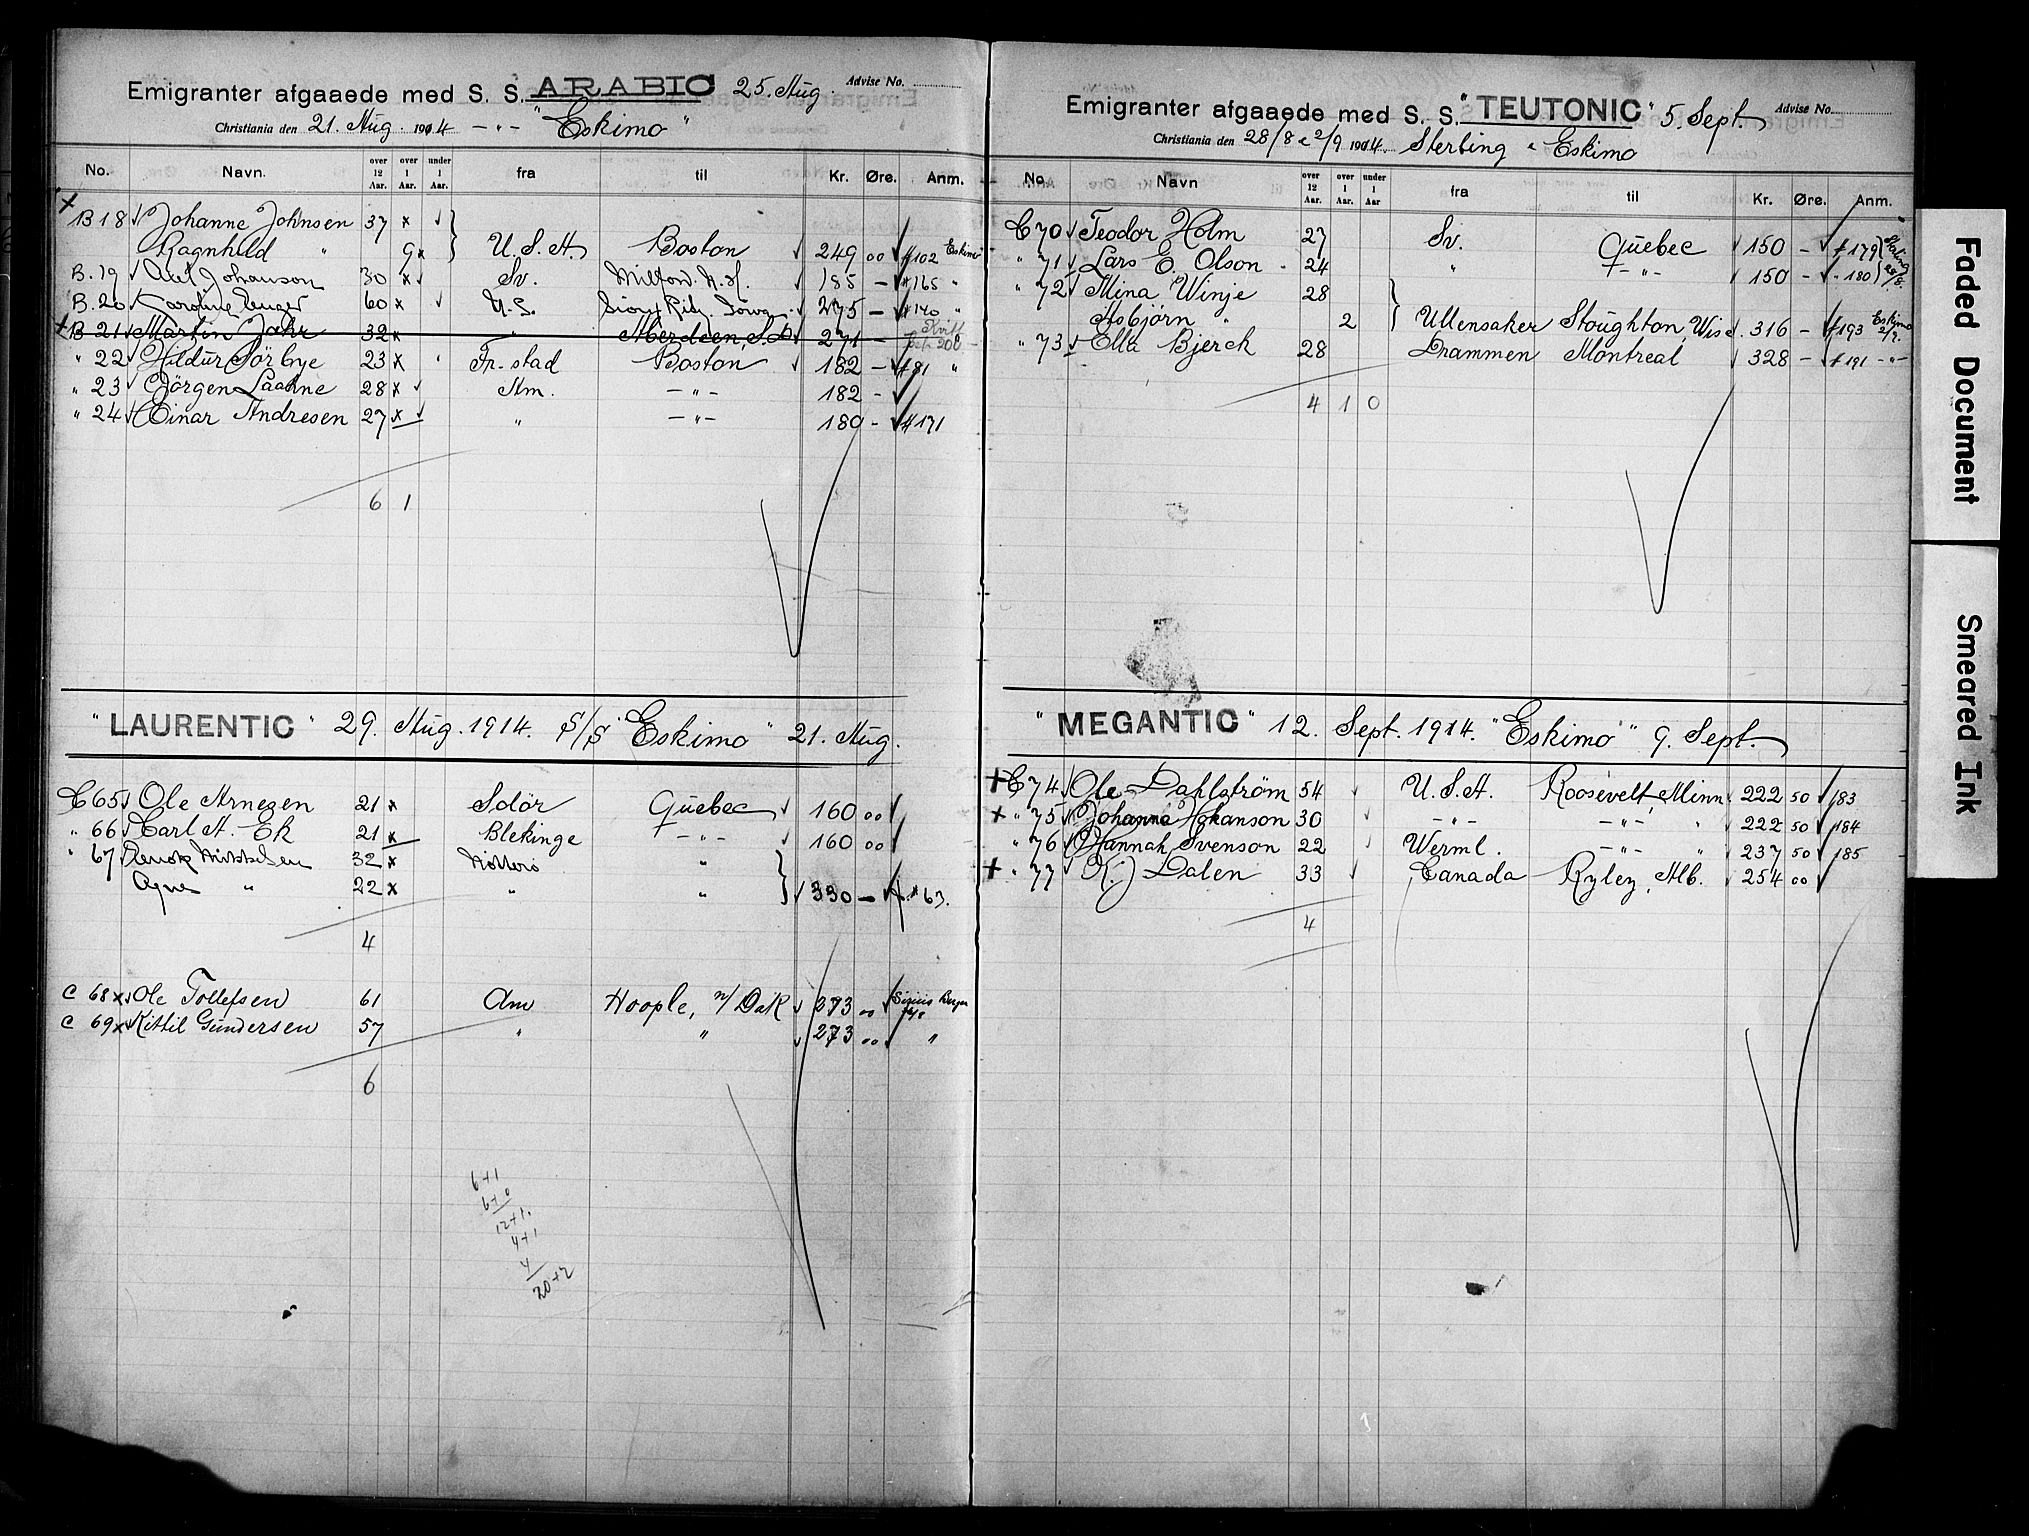 Emigranter afgaaede med S. S. ARABIC 25. Aug. Advise No.
Christiania den 21. Aug. 1914 — " — "Eskimo"
No. Navn. over 12 Aar. over 1 Aar. under 1 Aar. fra til Kr. Øre. Anm.
B 18 Johanne Johnsen 37 x
Ragnhild " 9 x U.S.A. Boston 249 00 # 102 Eskimo
B. 19 Axel Johanson 30 x Sv. Milford N.H. 185 — # 165 "
B. 20 Karoline Unger 60 x Sioux City. Iowa 275 — # 140 "
B 21 Martin Jahr 32 x " Aberdeen, S.D. 271 —
" 22 Hildur Sörbye 23 x Fr. stad Boston 182 — # 81 "
" 23 Jörgen Laahne 28 x Am. — " — 182 —
" 24 Einar Andresen 27 x " — " — 180 — # 171
6 1
"LAURENTIC" 29. Aug. 1914. S/S "Eskimo" 21. Aug.
C 65 Ole Arnesen 21 x Solör Quebec 160 00
" 66 Carl A. Ek 21 x Blekinge — " — 160 00
" 67 Mikkelsen 32 x Nötterö "
Agnes " 22 x " " 330 — # 63.
4
C 68 x Ole Tollefsen 61 Am Hoople, N/Dak 273 00 Sirius Bergen
C 69 x Kittil Gundersen 57 " " 273 00 "
6
6+1
6+0
12+1.
4+1
4
20+2
Emigranter afgaaede med S. S. "TEUTONIC" 5. Sept. Advise No.
Christiania den 28/8 & 2/9 1914. Sterling & Eskimo
No. Navn over 12 Aar. over 1 Aar. under 1 Aar fra til Kr. Øre. Anm.
C 70 Teodor Holm 27 Sv. Quebec 150 — # 179 Sterling
" 71 Lars E. Olson 24 " — " — 150 — " 180 28/8.
" 72 Mina Winje 28
Asbjörn " 2 Ullensaker Stoughton, Wisc. 316 — # 193 Eskimo 2/9.
" 73 Ella Bjerck 28 Drammen Montreal 328 — # 191 — " —
4 1 0
"MEGANTIC" 12. Sept. 1914. "Eskimo" 9. Sept.
C 74 Ole Dahlström 54 U.S.A. Roosevelt Minn. 222 50 183
" 75 Johanna Hokanson 30 — " — — " — " 222 50 184
" 76 Hannah Svenson 22 Werml. — " — " 237 50 185
" 77 K. J. Dalen 33 Canada Ryley, Alb. 254 00
4
Faded Document
Smeared Ink